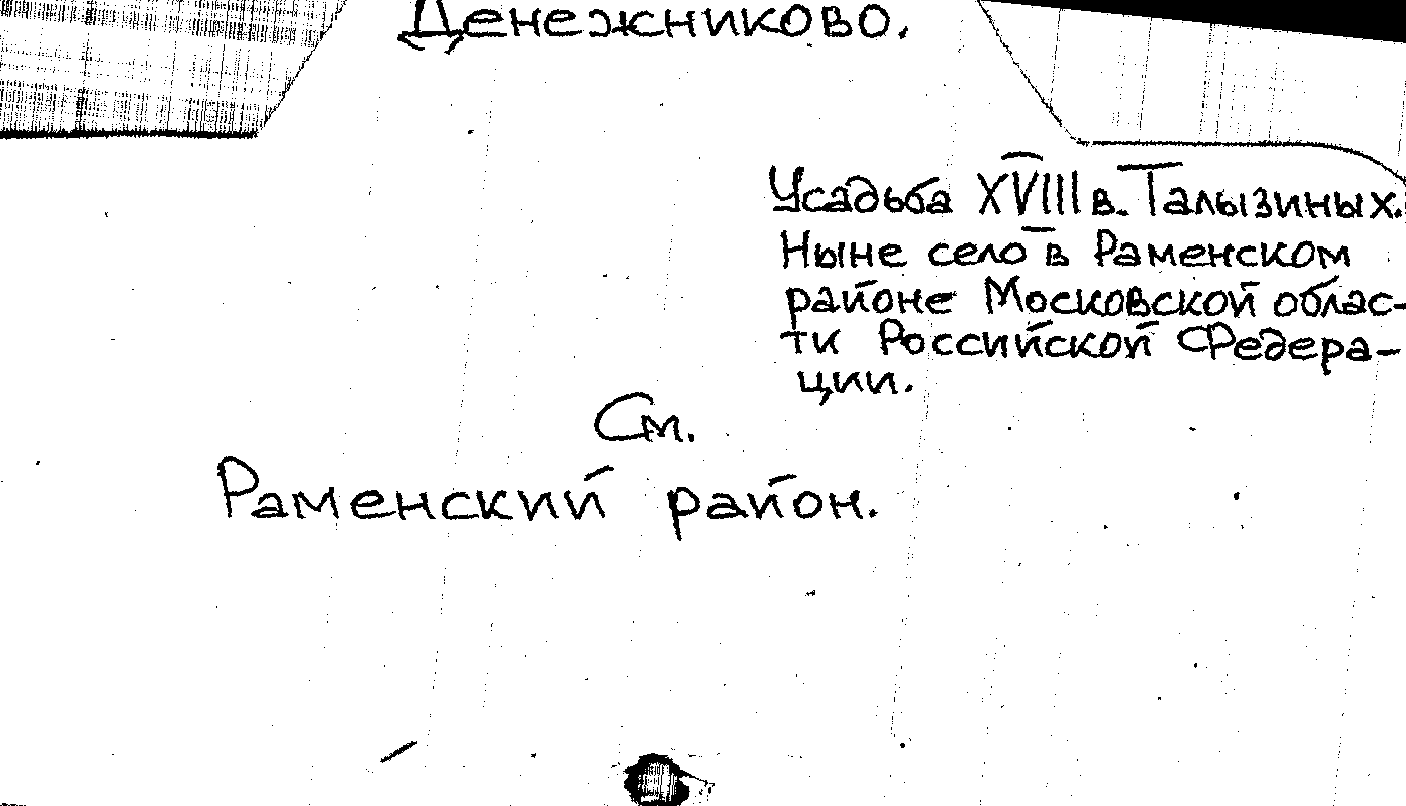 Денежниково.
Усадьба XVIII в. Талызиных.
Ныне село в Раменском
районе Московской облас-
ти Российской Федера-
ции.
См.
Раменский район.